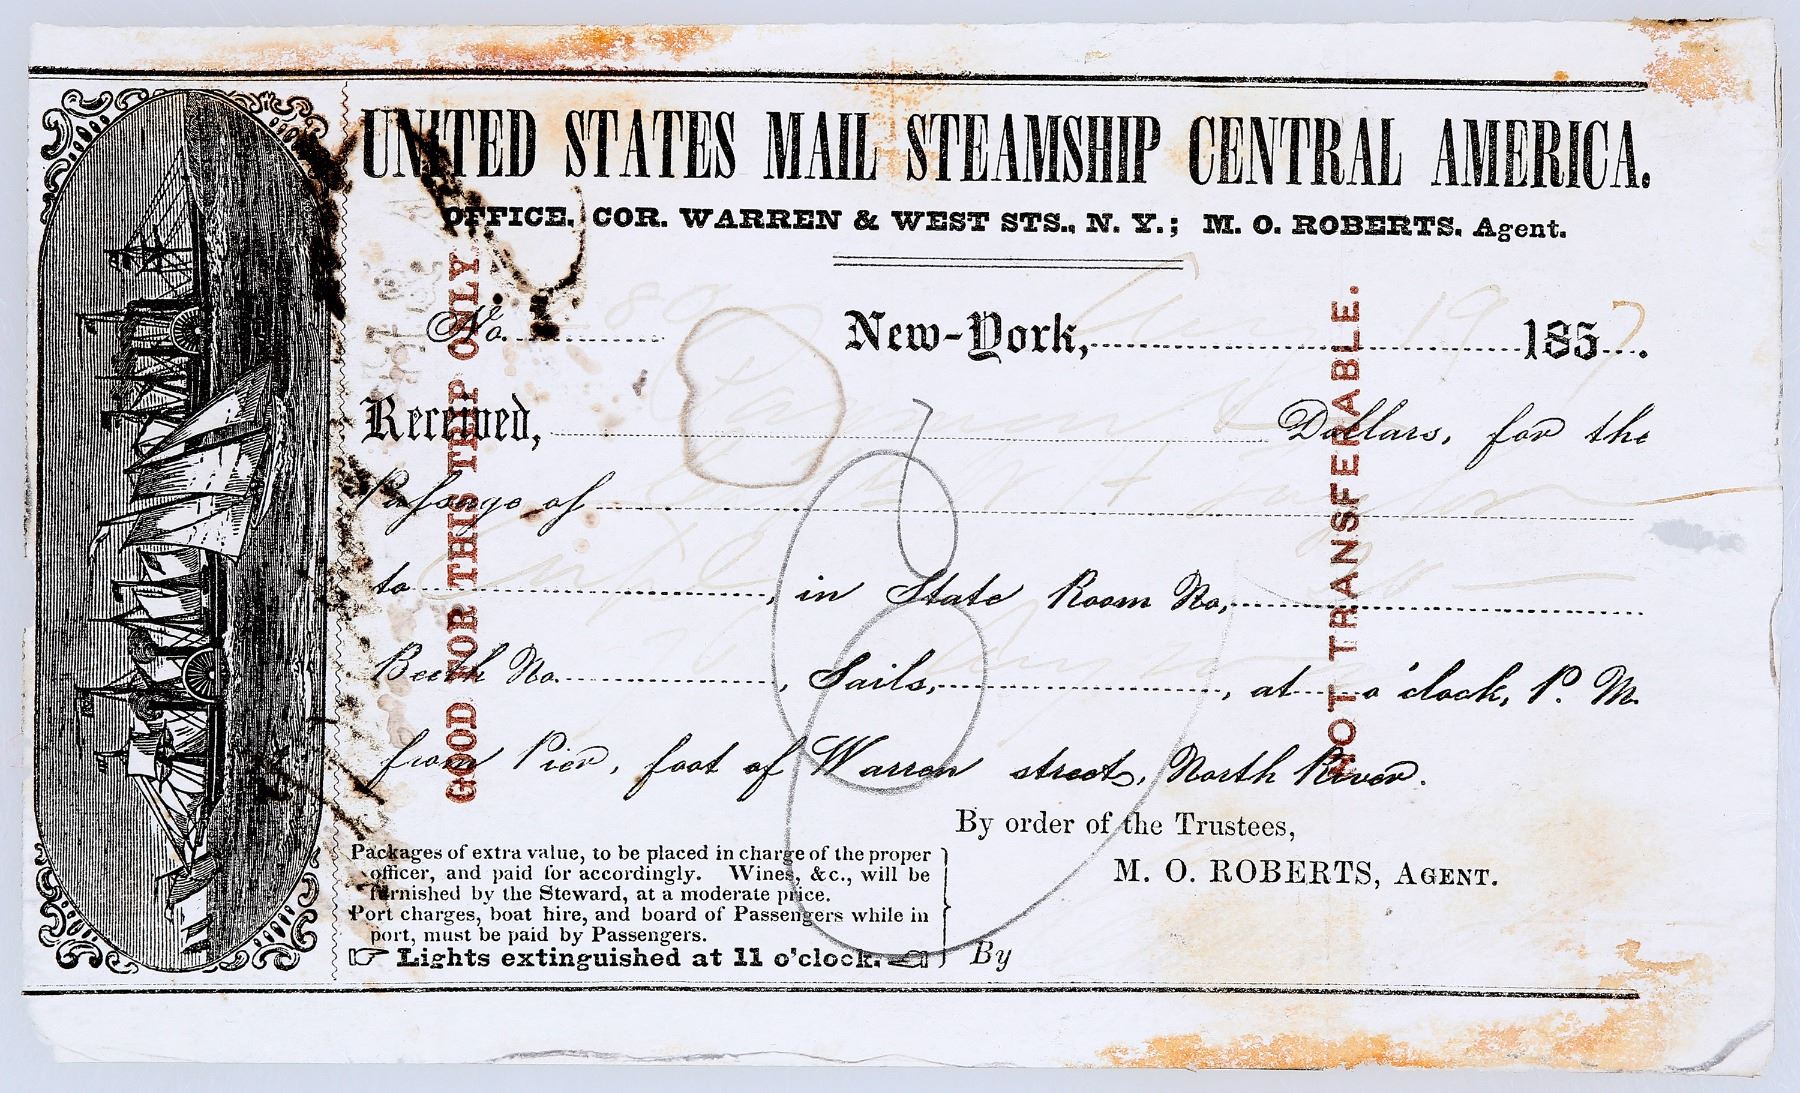 UNITED STATES MAIL STEAMSHIP CENTRAL AMERICA.
OFFICE, COR. WARREN & WEST STS., N. Y.; M. O. ROBERTS, Agent.
No. New-York, 19 1857.
Received, Dollars, for the
Passage of
to , in State Room No,
Berth No. , Sails, , at o'clock, P. M.
from Pier, foot of Warren street, North River.
By order of the Trustees,
M. O. ROBERTS, AGENT.
Packages of extra value, to be placed in charge of the proper
officer, and paid for accordingly. Wines, &c., will be
furnished by the Steward, at a moderate price.
Port charges, boat hire, and board of Passengers while in
port, must be paid by Passengers.
☞ Lights extinguished at 11 o'clock. ☜
By
GOOD FOR THIS TRIP ONLY
NOT TRANSFERABLE.